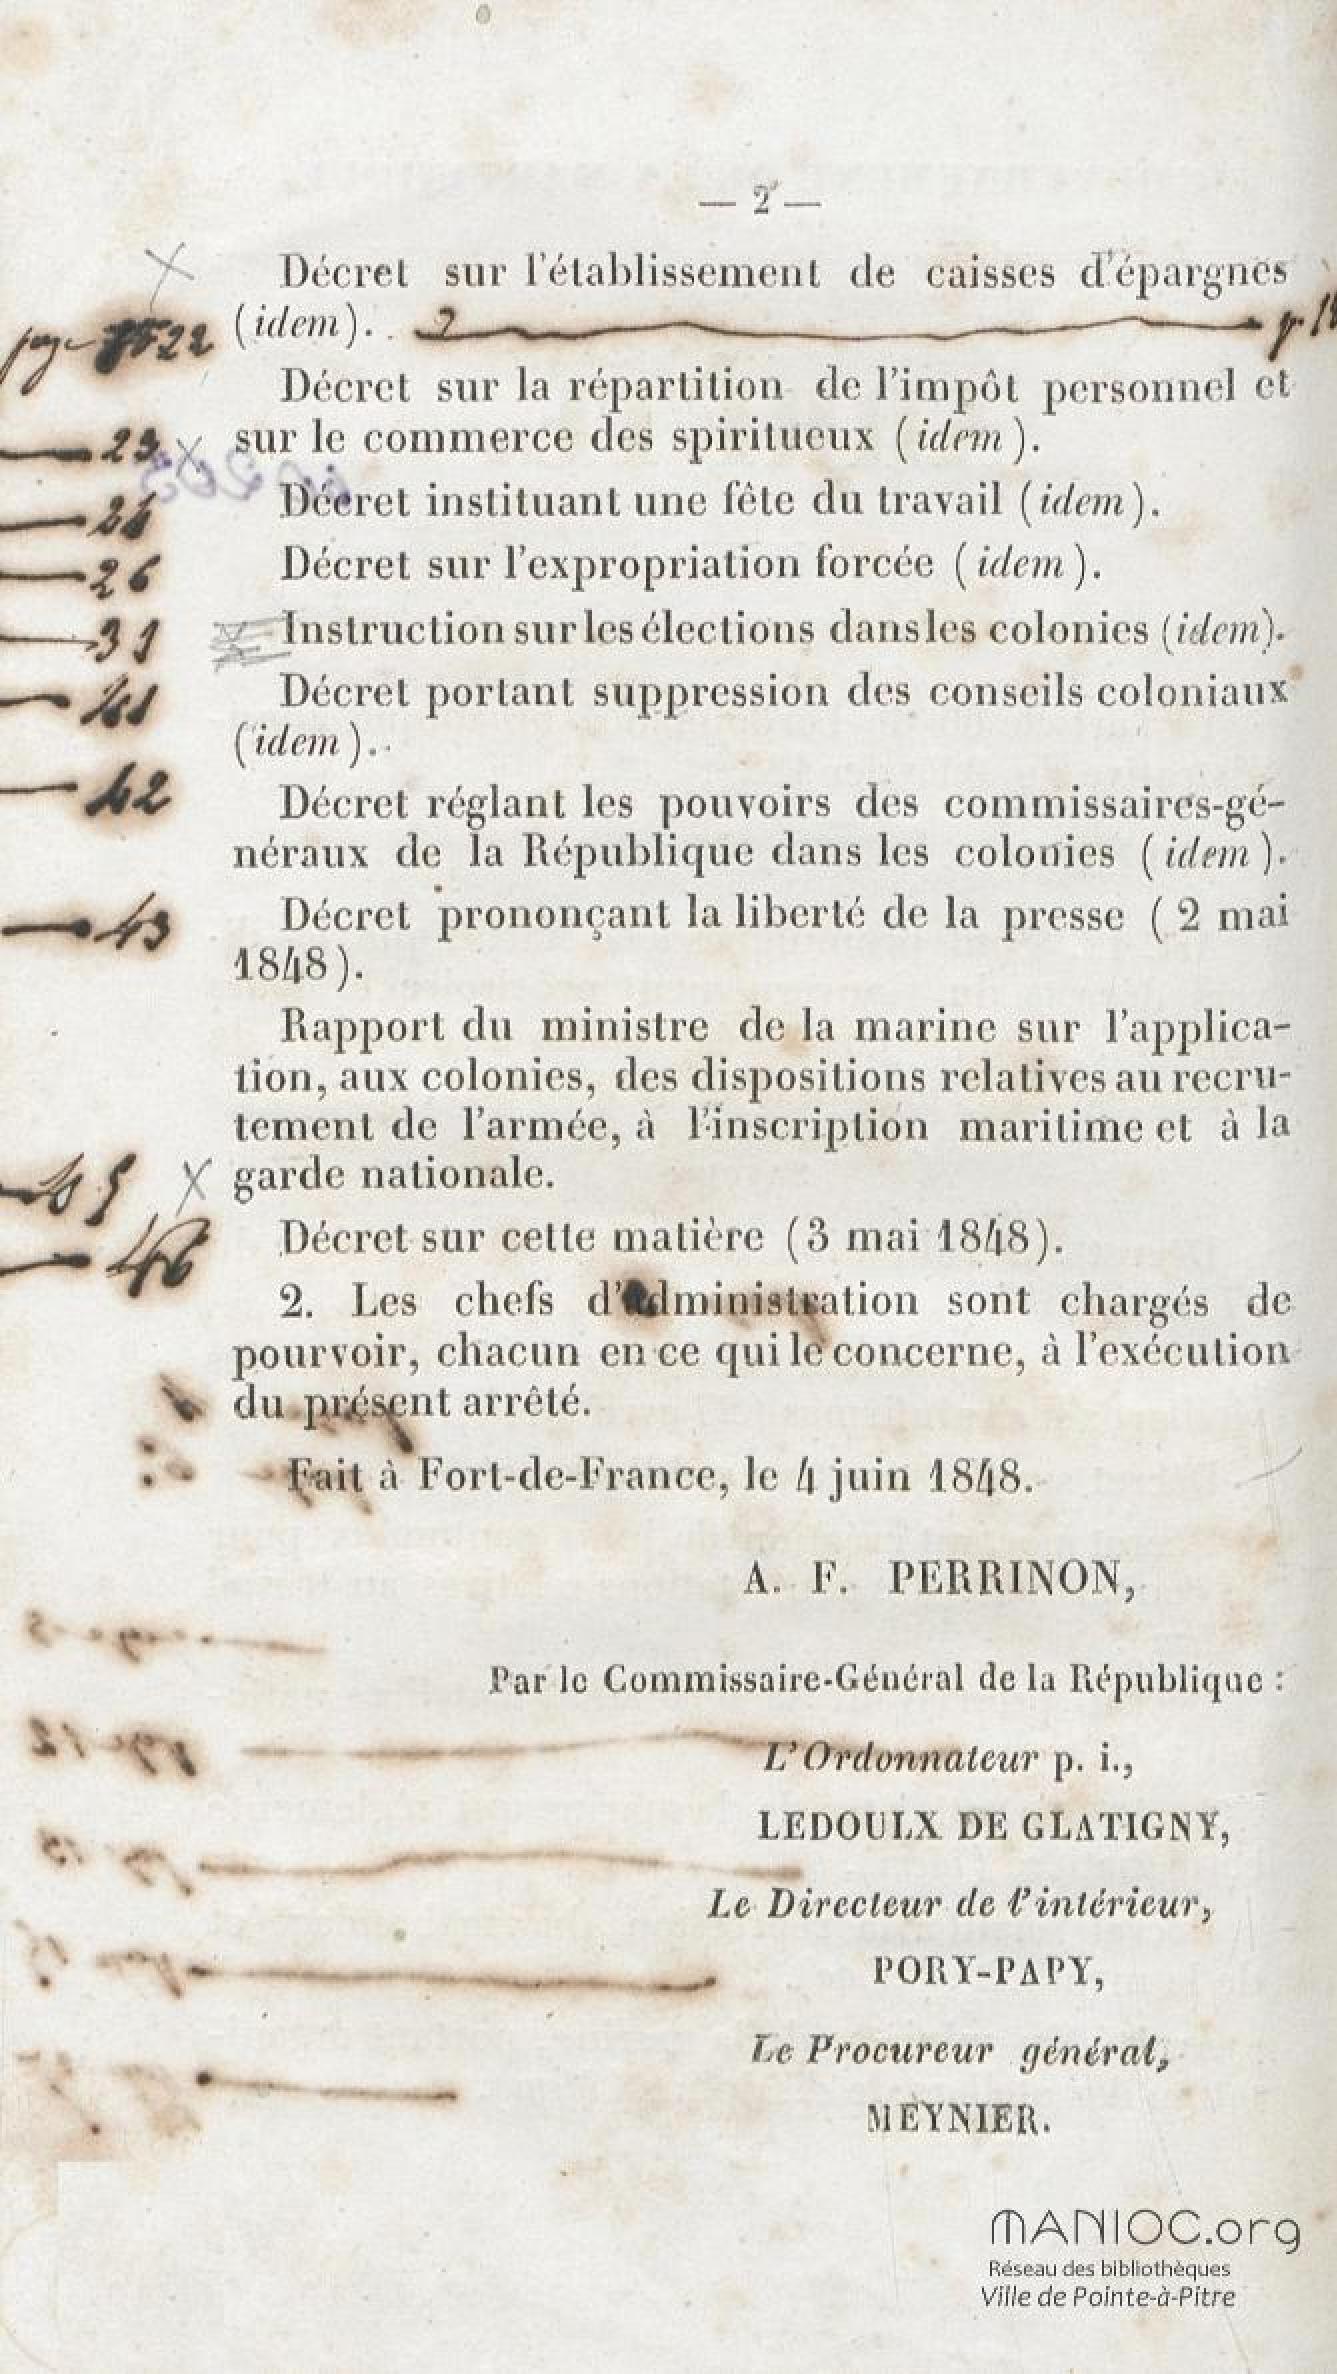 — 2 —
Décret sur l'établissement de caisses d'épargnes
page 22 (idem). .
Décret sur la répartition de l'impôt personnel et
23 sur le commerce des spiritueux (idem).
Décret instituant une fête du travail (idem).
26 Décret sur l'expropriation forcée (idem).
31 Instruction sur les élections dans les colonies (idem).
41 Décret portant suppression des conseils coloniaux
(idem). .
42 Décret réglant les pouvoirs des commissaires-gé-
néraux de la République dans les colonies (idem).
43 Décret prononçant la liberté de la presse (2 mai
1848).
Rapport du ministre de la marine sur l'applica-
tion, aux colonies, des dispositions relatives au recru-
tement de l'armée, à l'inscription maritime et à la
45 garde nationale.
46 Décret sur cette matière (3 mai 1848).
2. Les chefs d'administration sont chargés de
pourvoir, chacun en ce qui le concerne, à l'exécution
du présent arrêté.
Fait à Fort-de-France, le 4 juin 1848.
A. F. PERRINON,
Par le Commissaire-Général de la République :
L'Ordonnateur p. i.,
LEDOULX DE GLATIGNY,
Le Directeur de l'intérieur,
PORY-PAPY,
Le Procureur général,
MEYNIER.
MANIOC.org
Réseau des bibliothèques
Ville de Pointe-à-Pitre